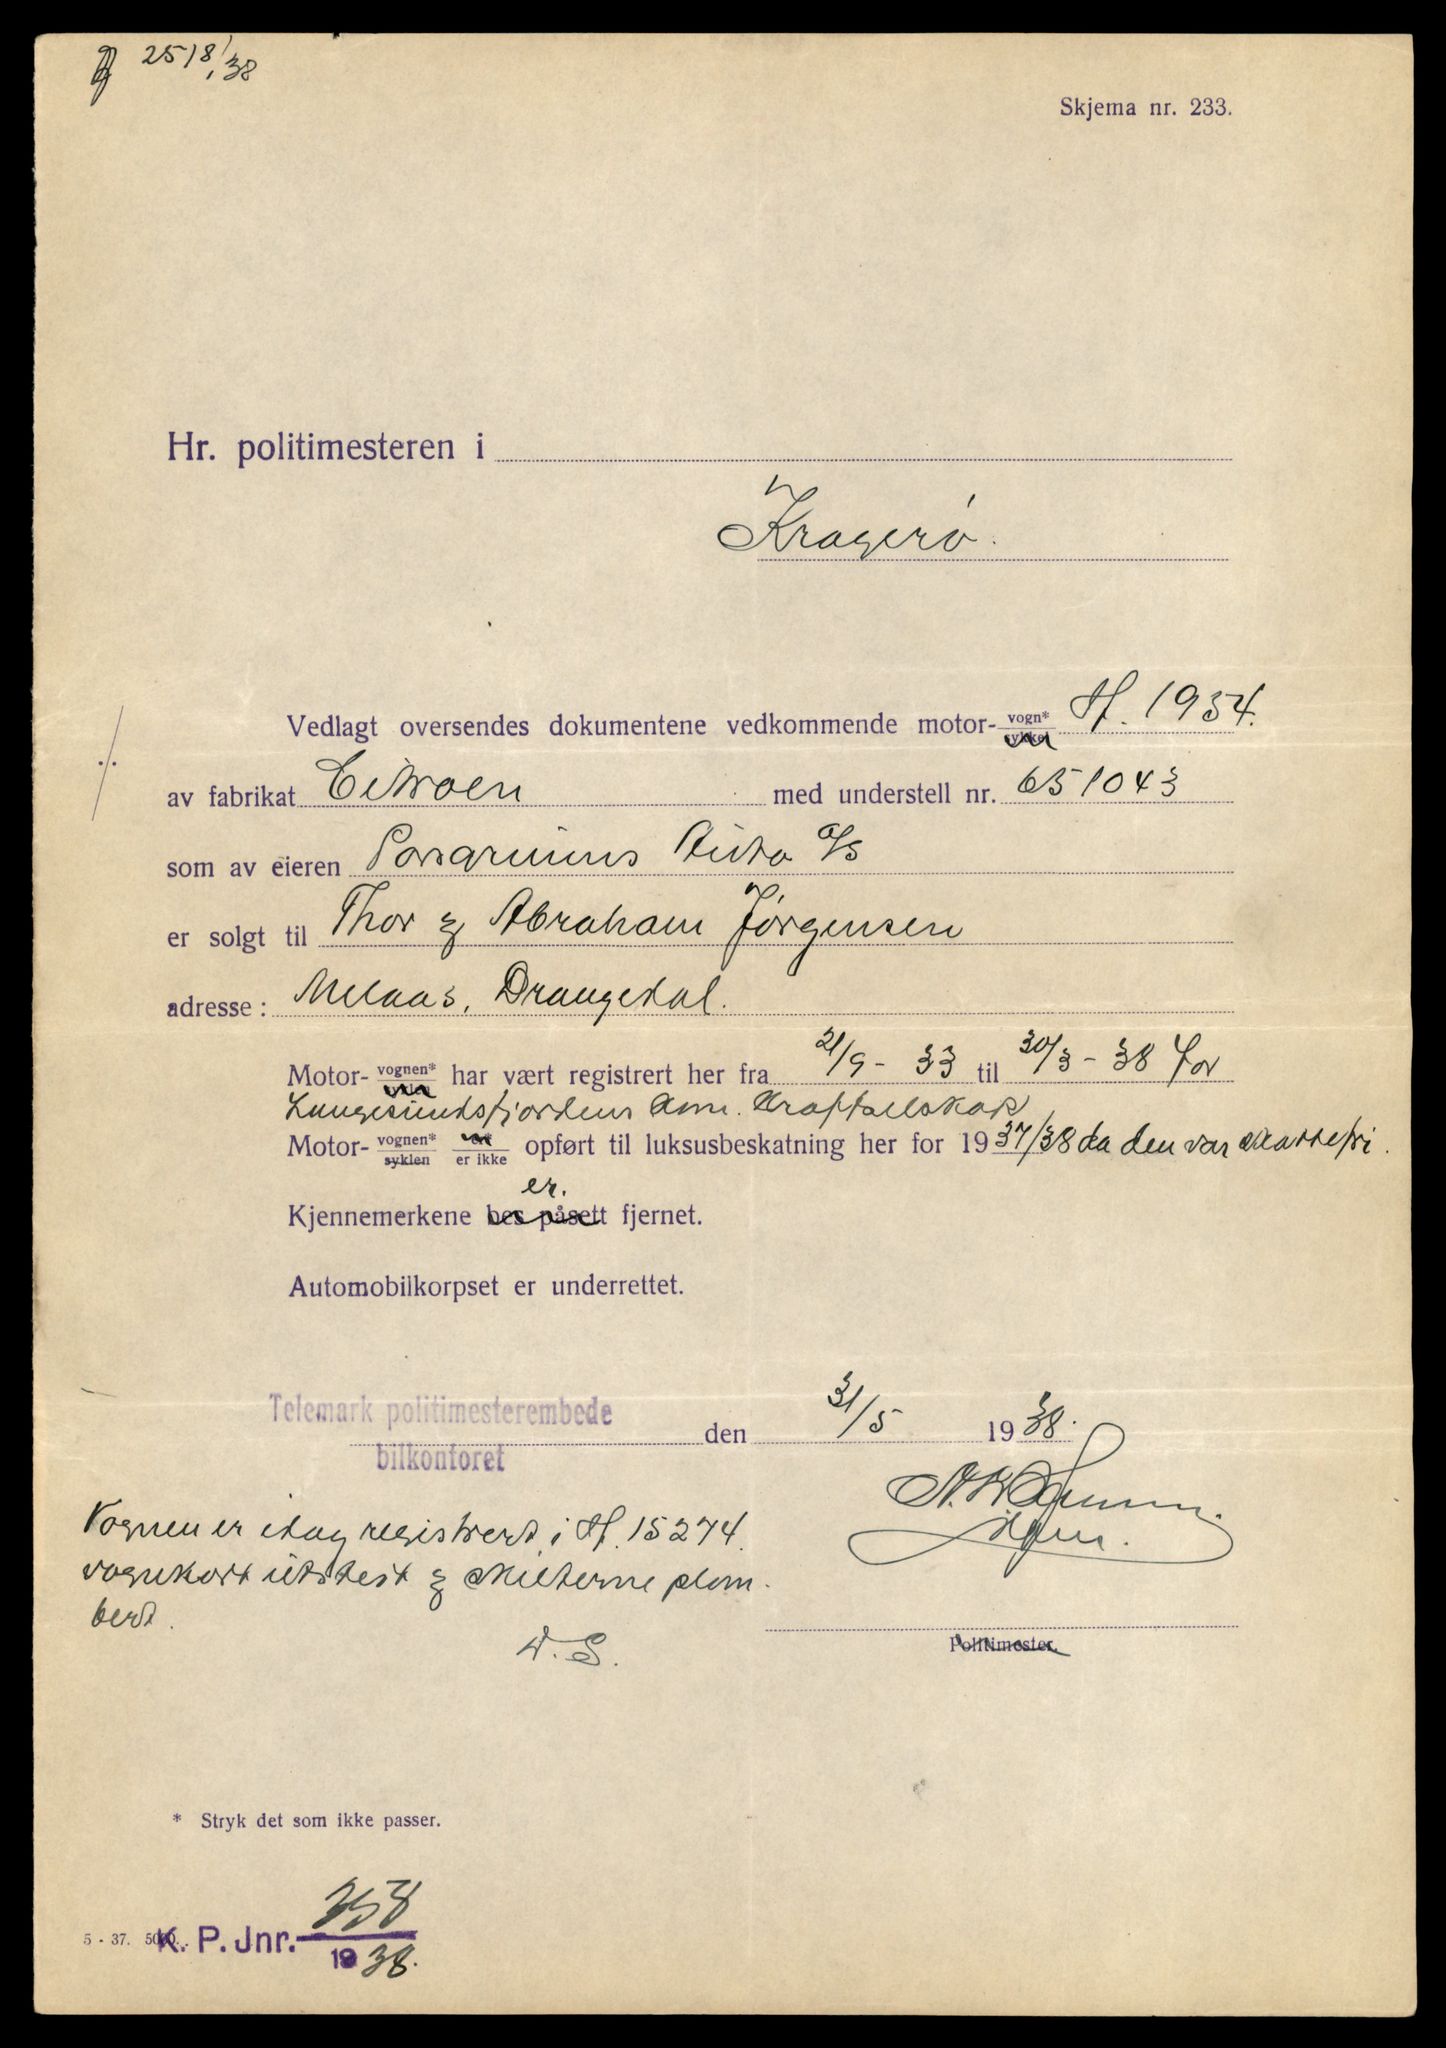 2518/38
Skjema nr. 233.
Hr. politimesteren i
Kragerø.
Vedlagt oversendes dokumentene vedkommende motor- vogn* sykkel H. 1934.
av fabrikat Citroen med understell nr. 651043
som av eieren Porsgrunns Auto A/S
er solgt til Thor & Abraham Jørgensen
adresse: Melaas, Drangedal.
Motor- vognen* har vært registrert her fra 21/9 - 33 til 30/3 - 38 for
Langesundsfjordens kom. Kraftselskap
Motor- vognen* syklen er ikke opført til luksusbeskatning her for 1937/38 da den var skattefri.
er.
Kjennemerkene bes påsett fjernet.
Automobilkorpset er underrettet.
Telemark politimesterembede
bilkontoret
den 31/5 1938.
fm.
Vognen er idag registrert i H. 15274.
vognkort utstedt & skilterne plom-
bert.
W. S.
Politimester.
* Stryk det som ikke passer.
5 - 37. 5000.
K. P. Jnr. 358
1938.